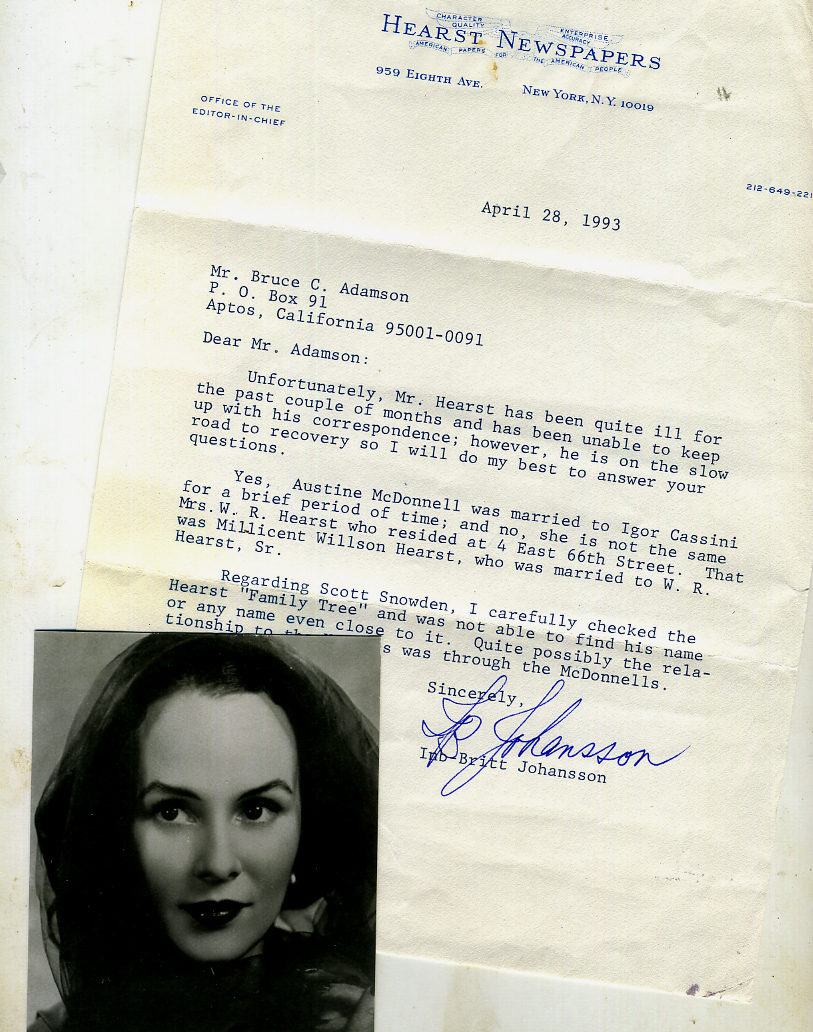 CHARACTER QUALITY ENTERPRISE ACCURACY
HEARST NEWSPAPERS
AMERICAN PAPERS FOR THE AMERICAN PEOPLE
959 EIGHTH AVE. NEW YORK, N.Y. 10019
OFFICE OF THE
EDITOR-IN-CHIEF
212-649-221
April 28, 1993
Mr. Bruce C. Adamson
P. O. Box 91
Aptos, California 95001-0091
Dear Mr. Adamson:
Unfortunately, Mr. Hearst has been quite ill for
the past couple of months and has been unable to keep
up with his correspondence; however, he is on the slow
road to recovery so I will do my best to answer your
questions.
Yes, Austine McDonnell was married to Igor Cassini
for a brief period of time; and no, she is not the same
Mrs. W. R. Hearst who resided at 4 East 66th Street. That
was Millicent Willson Hearst, who was married to W. R.
Hearst, Sr.
Regarding Scott Snowden, I carefully checked the
Hearst "Family Tree" and was not able to find his name
or any name even close to it. Quite possibly the rela-
tionship to was through the McDonnells.
Sincerely,
Johansson
Britt Johansson